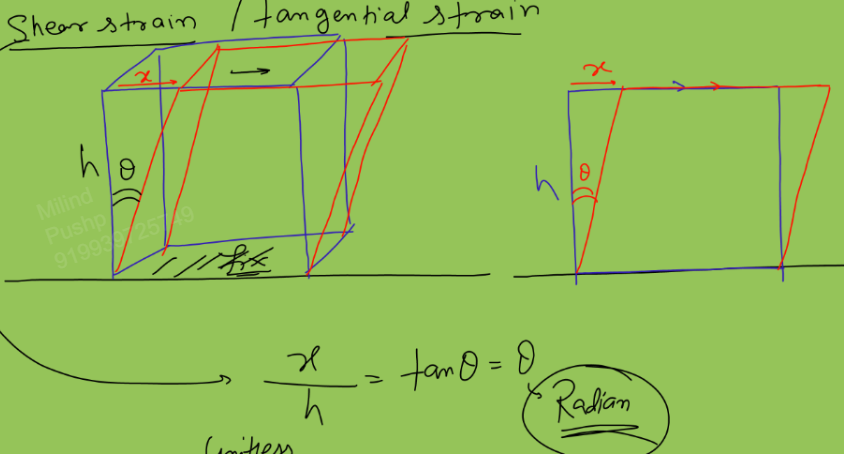 Shear strain / tangential strain
x
x
h
θ
θ
h
Milind
Pushp
fix
x/h = tanθ = θ
Radian
Unitless